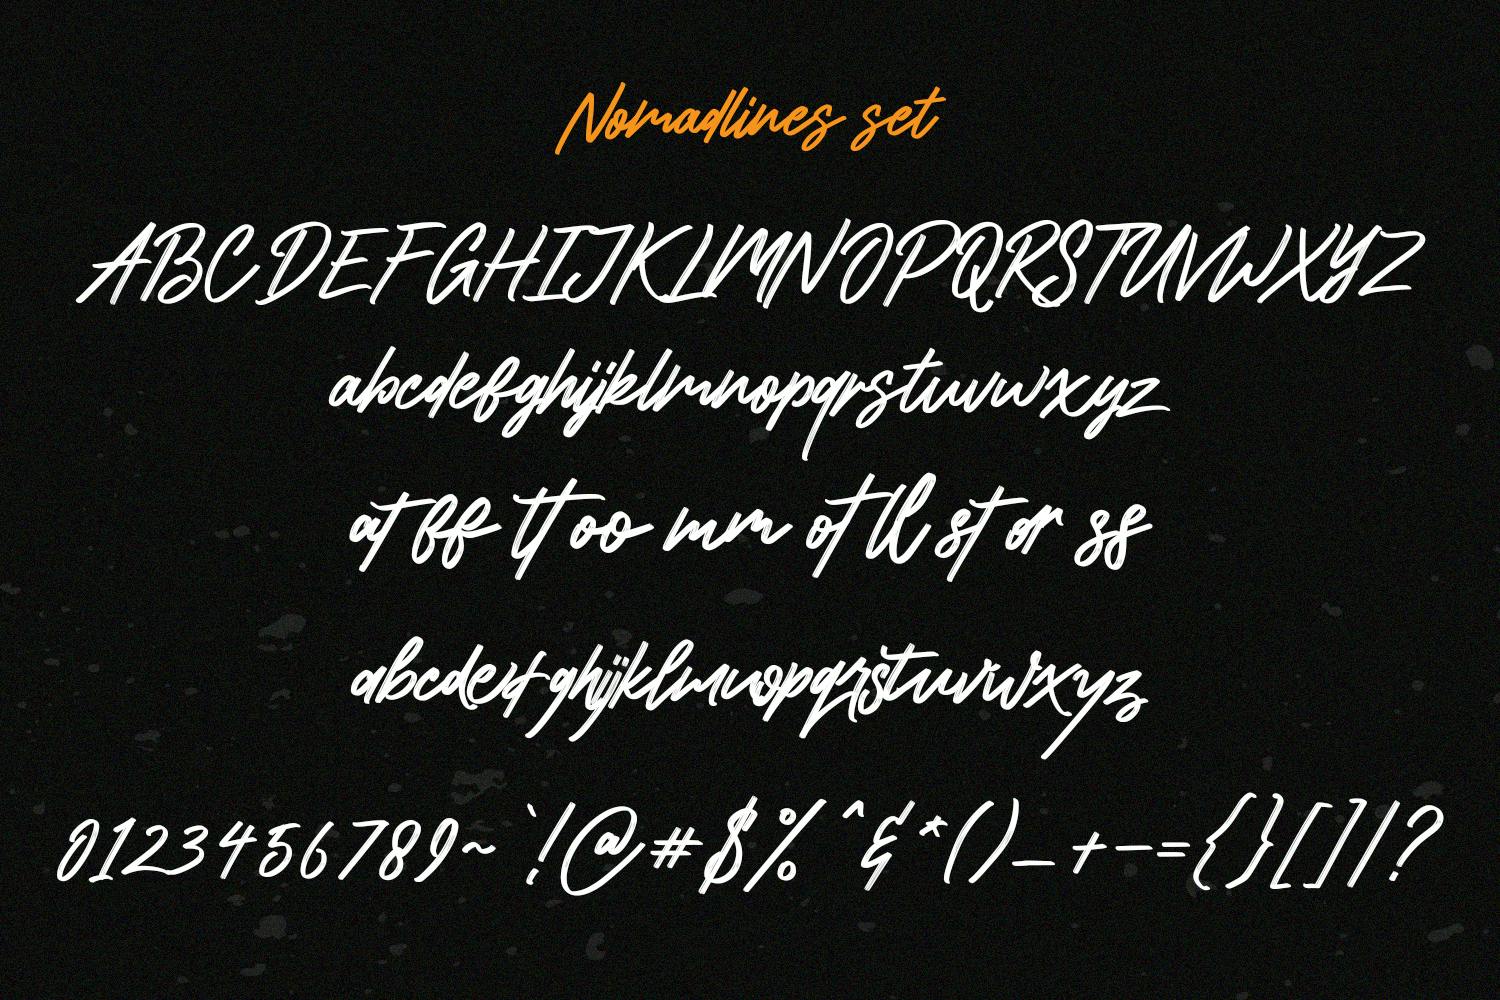 Nomadlines set
ABCDEFGHIJKLMNOPQRSTUVWXYZ
abcdefghijklmnopqrstuvwxyz
at ff tt oo mm ot ll st or ss
abcdefghijklmnopqrstuvwxyz
0123456789~`!@#$%^&*()_+-={}[]|?